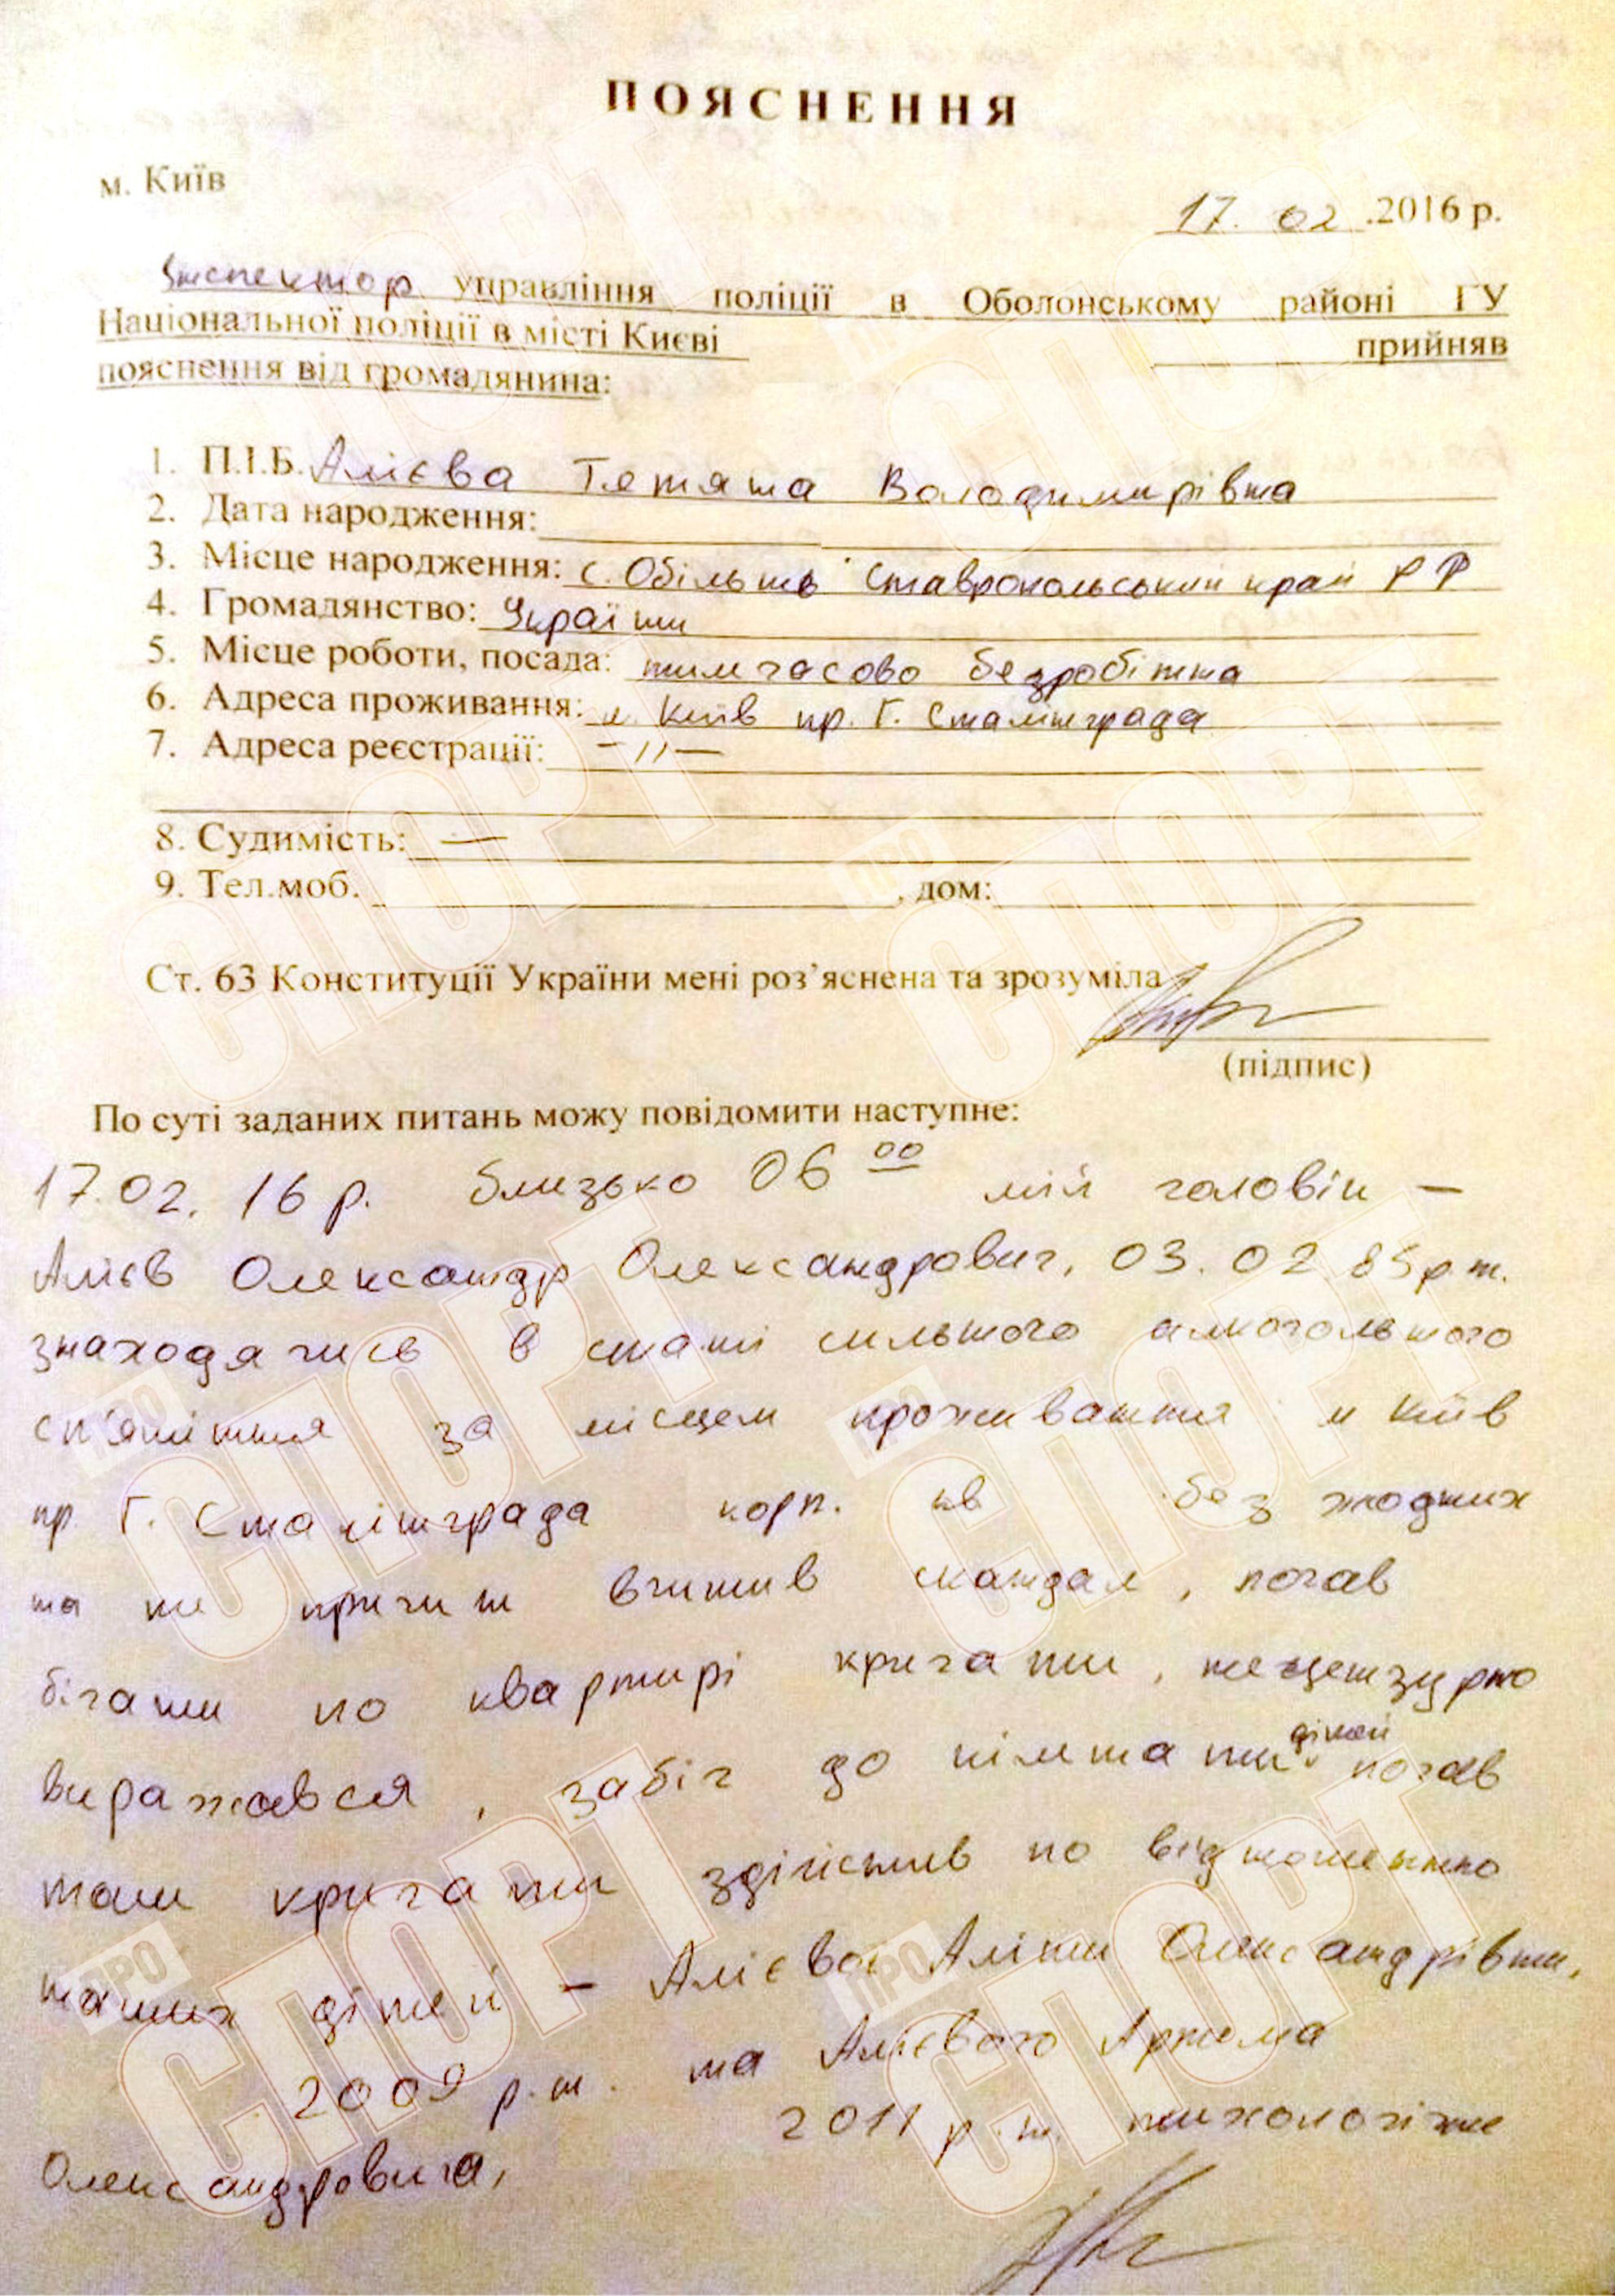 ПОЯСНЕННЯ
м. Київ
17. 02 .2016 р.
Інспектор управління поліції в Оболонському районі ГУ
Національної поліції в місті Києві прийняв
пояснення від громадянина:
1. П.І.Б. Алієва Тетяна Володимирівна
2. Дата народження:
3. Місце народження: с. Обільне Ставропольський край РФ
4. Громадянство: України
5. Місце роботи, посада: тимчасово безробітна
6. Адреса проживання: м. Київ пр. Г. Сталінграда
7. Адреса реєстрації: —//—
8. Судимість: —
9. Тел.моб. , дом:
Ст. 63 Конституції України мені роз’яснена та зрозуміла
(підпис)
По суті заданих питань можу повідомити наступне:
17.02.16 р. близько 06 00 мій чоловік –
Алієв Олександр Олександрович, 03.02 85 р.н.
знаходячись в стані сильного алкогольного
сп'яніння за місцем проживання м Київ
пр. Г. Сталінграда корп. кв без жодних
на те причин вчинив скандал, почав
бігати по квартирі кричати, нецензурно
виражався, забіг до кімнати дітей почав
там кричати здійснив по відношенню
наших дітей – Алієвої Аліни Олександрівни,
2009 р.н. та Алієвого Артема
Олександровича, 2011 р.н. психологічне
ПРО СПОРТ